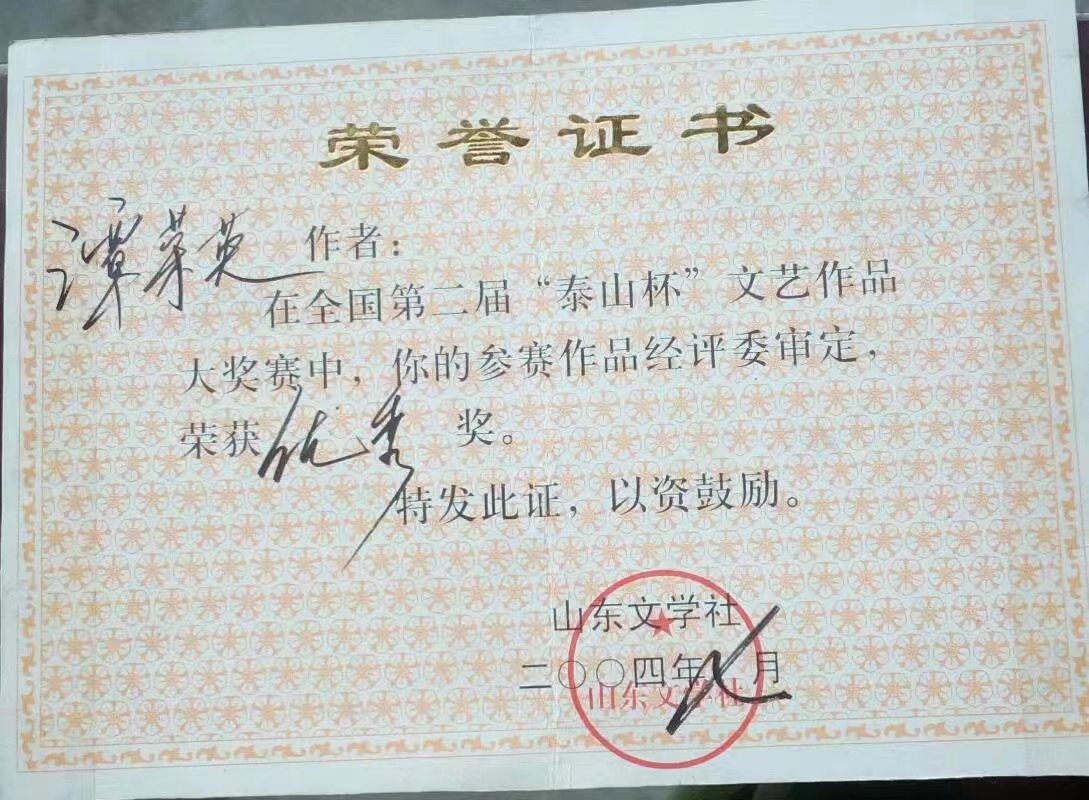 荣誉证书
谭菊英 作者：
在全国第二届“泰山杯”文艺作品
大奖赛中，你的参赛作品经评委审定，
荣获优秀 奖。
特发此证，以资鼓励。
山东文学社
二〇〇四年 月
山东文学社